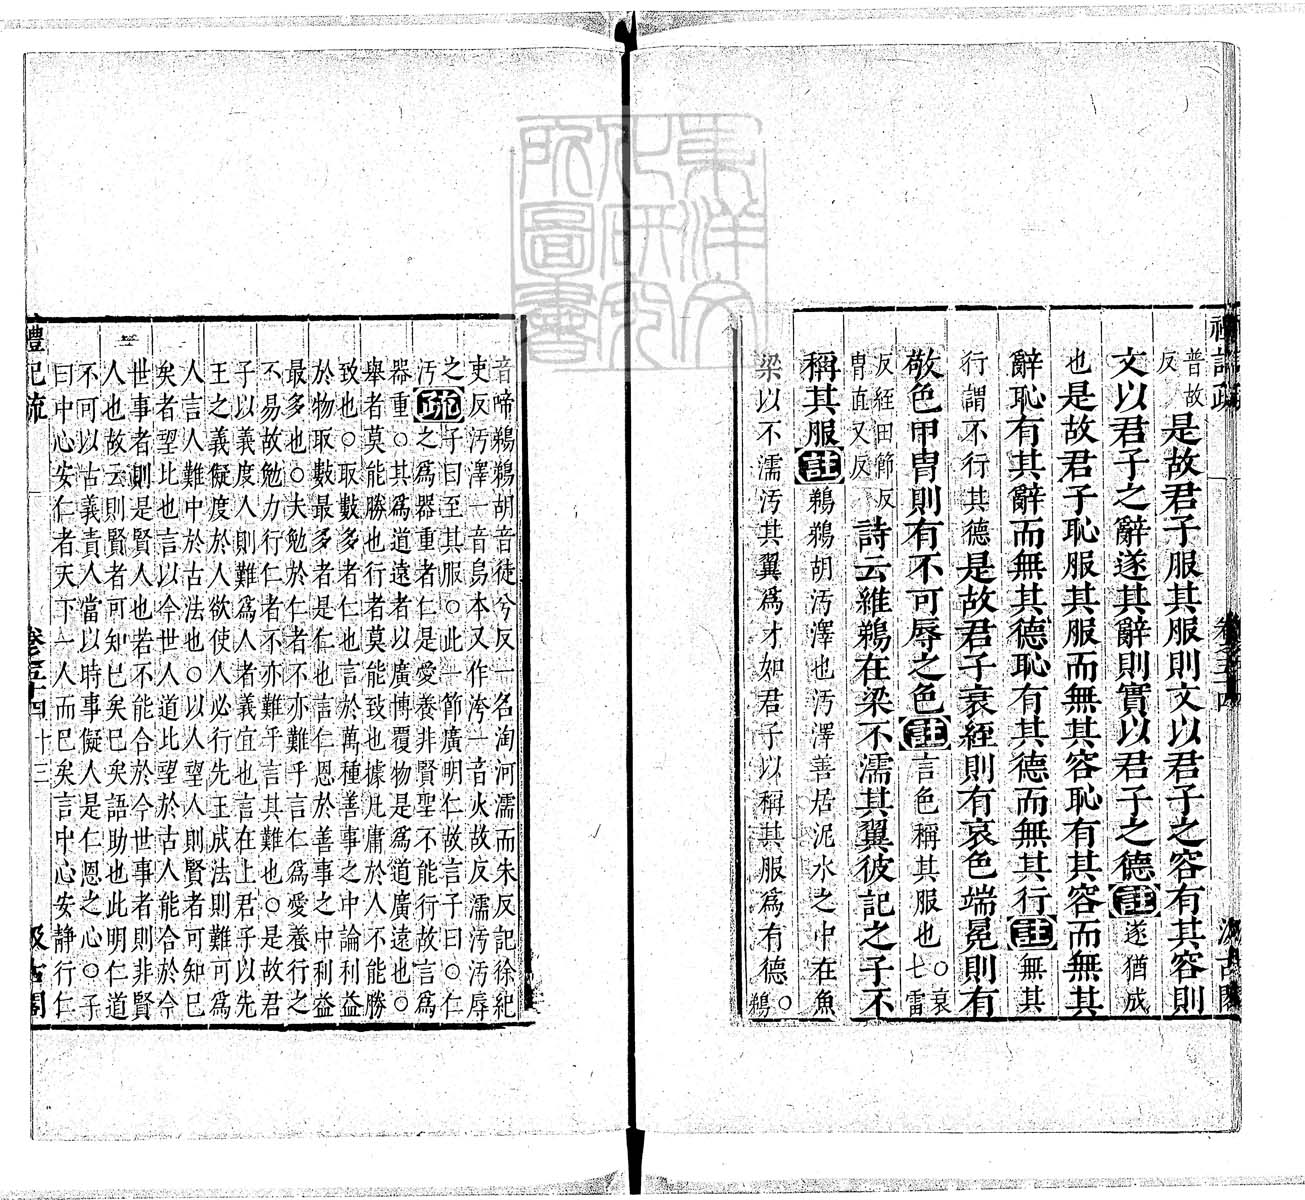 普故
反
是故君子服其服則文以君子之容有其容則
文以君子之辭遂其辭則實以君子之德註遂猶成
也是故君子恥服其服而無其容恥有其容而無其
辭恥有其辭而無其德恥有其德而無其行註無其
行謂不行其德是故君子衰絰則有哀色端冕則有
敬色甲冑則有不可辱之色註言色稱其服也○衰
七雷
反絰田節反
冑直又反
詩云維鵜在梁不濡其翼彼記之子不
稱其服註鵜鵜胡污澤也污澤善居泥水之中在魚
梁以不濡污其翼為才如君子以稱其服為有德○鵜
音啼鵜鵜胡音徒兮反一名淘河濡而朱反記徐紀
吏反污澤一音烏本又作洿一音火故反濡污污辱
之疏子曰至其服○此一節廣明仁故言子曰○仁
之為器重者仁是愛養非賢聖不能行故言為
器重○其為道遠者以廣博覆物是為道廣遠也○
舉者莫能勝也行者莫能致也據凡庸於人不能勝
致也○取數多者仁也言於萬種善事之中論利益
於物取數最多者是仁也言仁恩於善事之中利益
最多也○夫勉於仁者不亦難乎言仁為愛養行之
不易故勉力行仁者不亦難乎言其難也○是故君
子以義度人則難為人者義宜也言在上君子以先
王之義儗度於人欲使人必行先王成法則難可為
人言人難中於古法也○以人望人則賢者可知已
矣者望比也言以今世人道比望於古人能合於今
世事者則是賢人也若不能合於今世事者則非賢
人也故云則賢者可知已矣已矣語助也此明仁道
不可以古義責人當以時事儗人是仁恩之心○子
曰中心安仁者天下一人而已矣言中心安靜行仁
禮記疏 卷五十四 十三 汲古閣